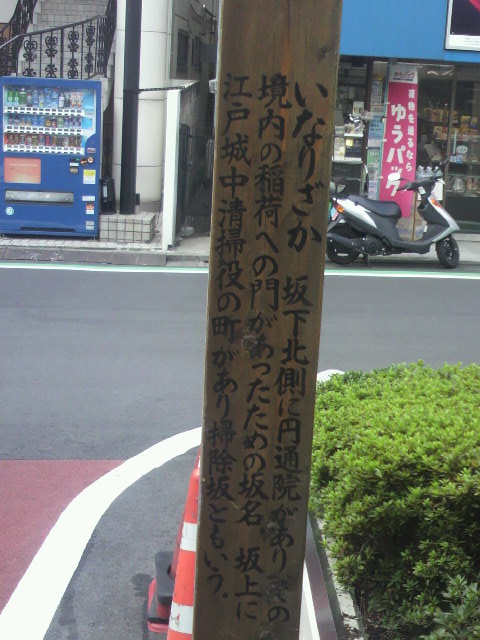 いなりざか 坂下北側に円通院がありその
境内の稲荷への門があったための坂名 坂上に
江戸城中清掃役の町があり掃除坂ともいう。
荷物を送るなら
ゆうパック